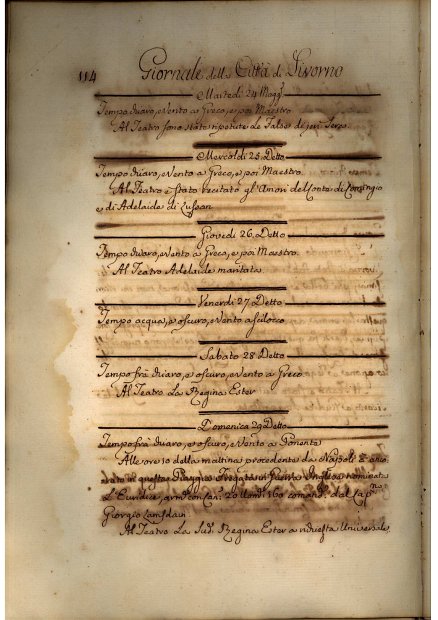 114 Giornale della Città di Livorno
Martedi 24 Magg.
Tempo chiaro, e Vento a Greco, e poi Maestro
Al Teatro sono state ripetute Le False di jeri Sera
Mercoldi 25 Detto
Tempo chiaro, e Vento a Greco, e poi Maestro
Al Teatro è stato recitato gl'Amori del Conte di Comingio
e di Adelaide di Lussan
Giovedi 26. Detto
Tempo chiaro, e Vento a Greco, e poi Maestro
Al Teatro Adelaide maritata
Venerdi 27 Detto
Tempo acqua, e oscuro, e Vento a Scilocco
Sabato 28 Detto
Tempo frà chiaro, e oscuro, e Vento a Greco
Al Teatro La Regina Ester
Domenica 29 Detto
Tempo frà chiaro, e oscuro, e Vento a Ponente
Alle ore 10 della mattina procedente da Napoli è anco
rata in questa Spiaggia Fregata in Guerra Inglese nominata
L'Euridice, arm. con Can. 20 Uom. 160 comand. dal Cap.no
Giorgio Lumsdain
Al Teatro La Sud. Regina Ester a richiesta Universale